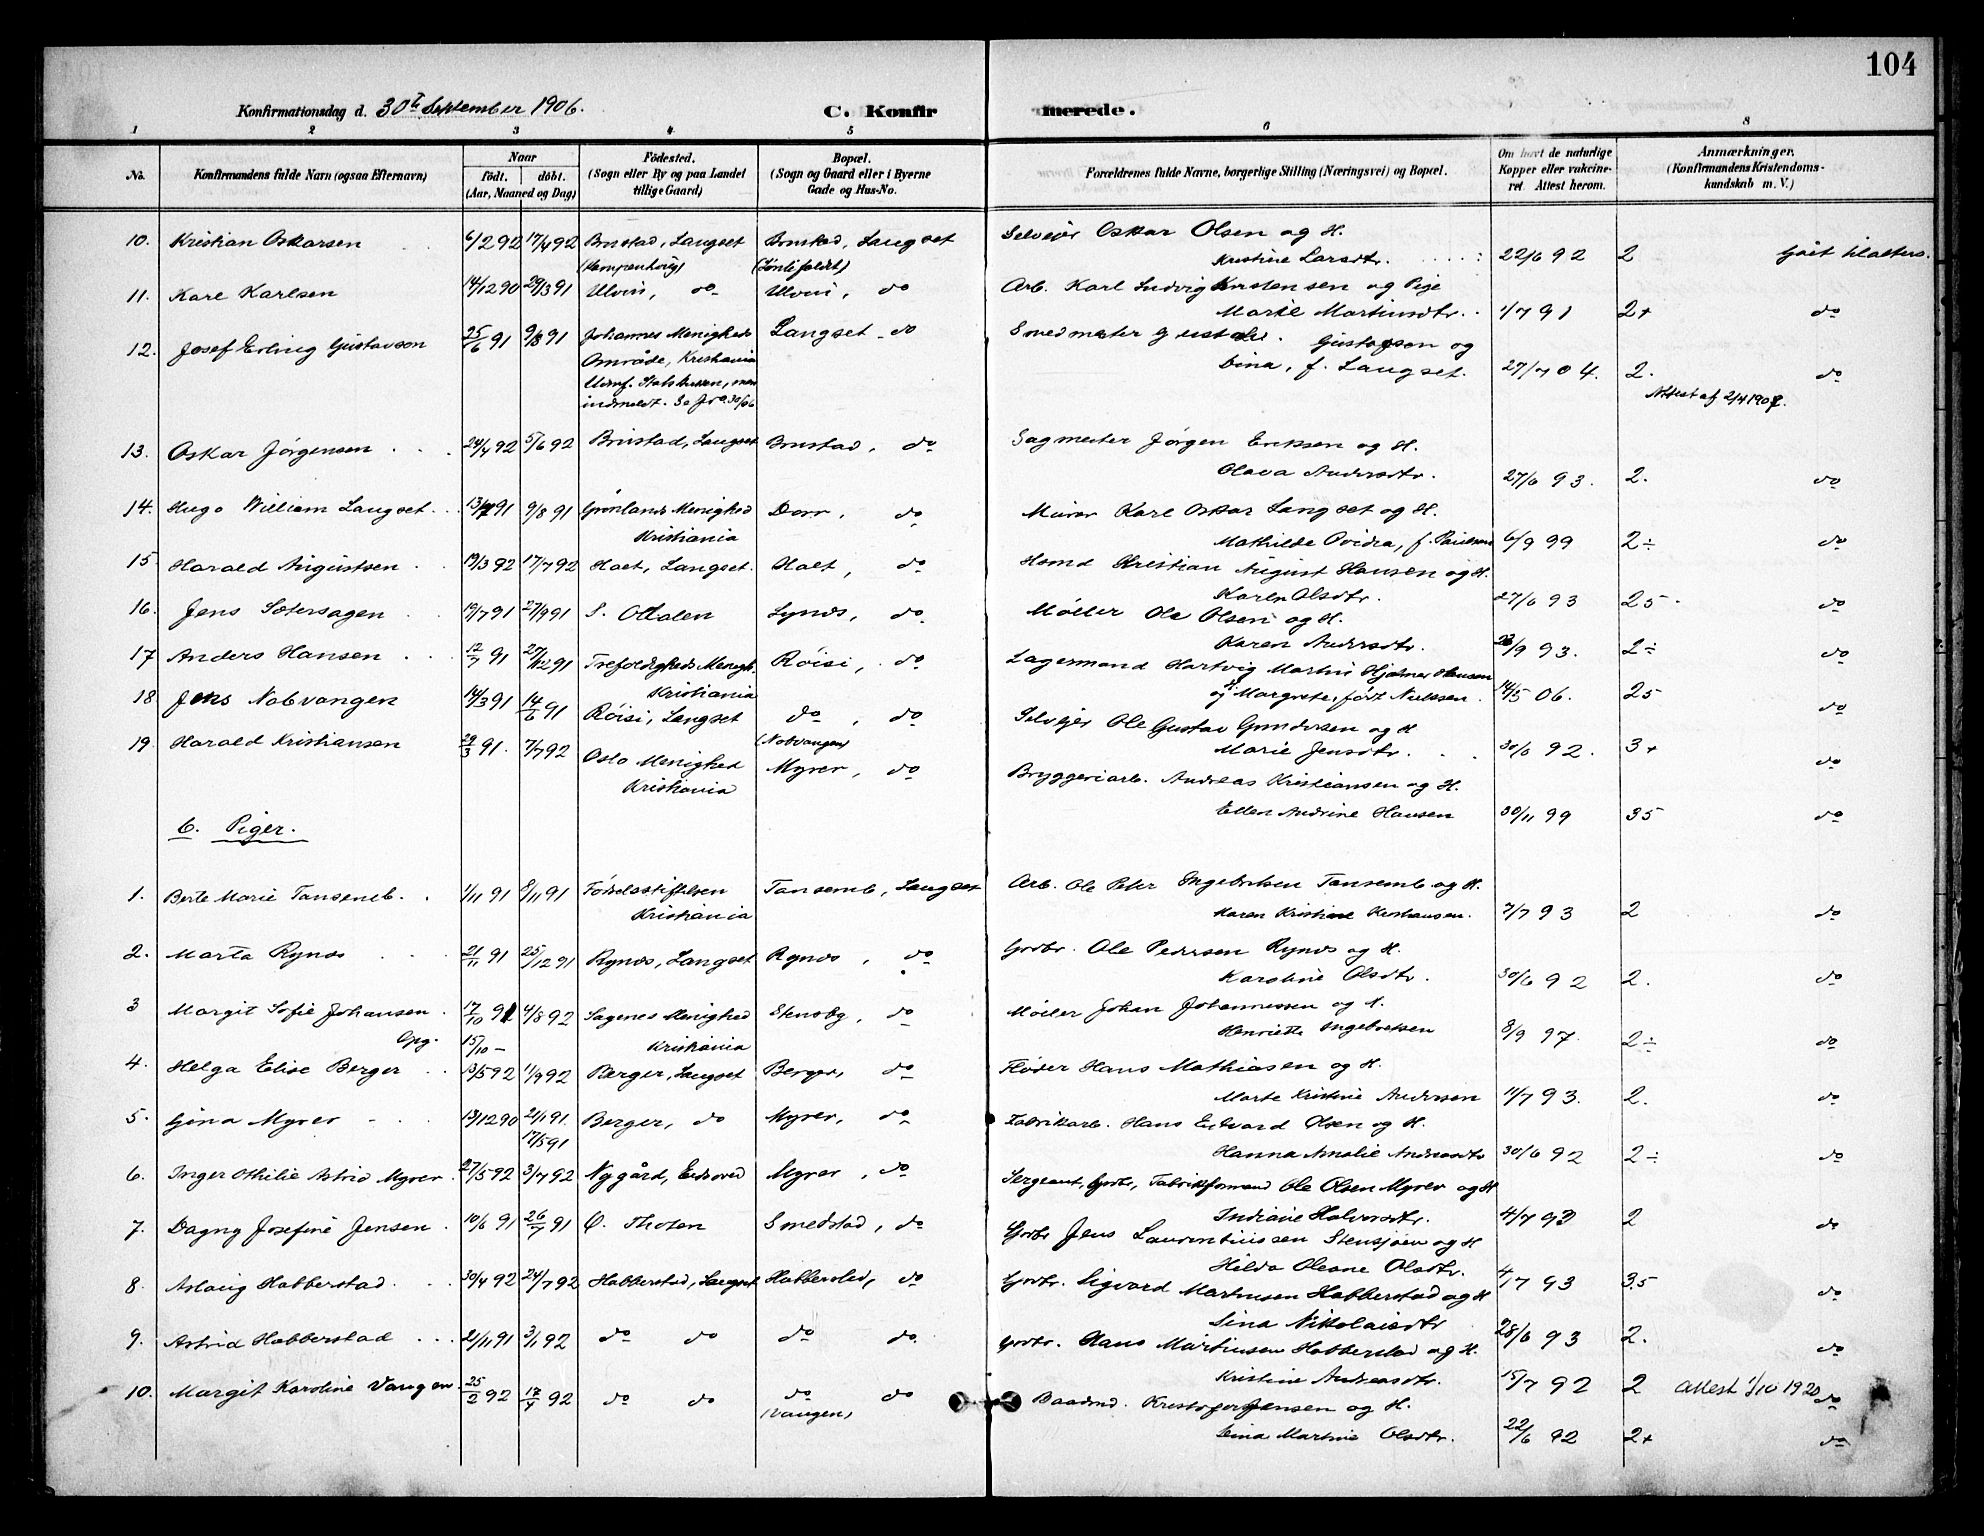 104
Konfirmationsdag d. 30te September 1906.
C. Konfirmerede.
1 2 3 4 5 6 8
No. Konfirmandens fulde Navn (ogsaa Efternavn) Naar født. døbt. (Aar, Maaned og Dag) Fødested. (Sogn eller By og paa Landet tillige Gaard) Bopæl. (Sogn og Gaard eller i Byerne Gade og Hus-No. Forældrenes fulde Navne, borgerlige Stilling (Næringsvei) og Bopæl. Om havt de naturlige Kopper eller vakcineret. Attest herom. Anmærkninger. (Konfirmandens Kristendomskundskab m. V.)
10. Kristian Oskarsen 6/2 92 17/4 92 Brustad, Langset Brustad, Langset Selveier Oskar Olsen og H.
Kristine Larsdtr. 22/6 92 2 Gået til alters.
11. Karl Karlsen 14/12 90 29/3 91 Ulvin, do Ulvin, do Arb. Karl Ludvig Kristensen og Pige
Marie Martinsdtr. 1/7 91 2+ do
12. Josef Erling Gustavson 25/6 91 9/8 91 Johannes Menigheds Langset do Smedmester Gustav Gustafson og
Område, Kristiania
Dina, f. Langset. 27/7 04. 2. do
Attest af 2/4 1907.
13. Oskar Jørgensen 24/4 92 5/6 92 Brustad, Langset Brustad, do Sagmester Jørgen Eriksen og H.
Olava Andersdtr. 27/6 93. 2. do
14. Hugo William Langset 13/7 91 9/8 91 Grønlands Menighed Dorr, do Murer Karl Oskar Langset og H.
Kristiania
Mathilde Ovidia, f. Paulsen 6/9 99 2÷ do
15. Harald Augustsen 19/3 92 17/7 92 Holt, Langset Holt, do Hsmd Kristian August Hansen og H.
Karen Olsdtr. 27/6 93 2 5 do
16. Jens Sætersagen 19/7 91 27/9 91 S. Odalen Lynæs, do Møller Ole Olsen og H.
Karen Andersdtr. 23/9 93. 2÷ do
17 Anders Hansen 12/7 91 27/12 91 Trefoldigheds Menigh. Røisi, do Lagermand Hartvig Martin Hjalmar Hansen
Kristiania
og H. Margrete, født Nielssen 14/5 06. 2 5 do
18 Jens Nabvangen 14/3 91 14/6 91 Røisi, Langset do, do Selveier Ole Gustav Gundersen og H
(Nabvangen)
Marie Jensdtr. 30/6 92. 3+ do
19. Harald Kristiansen 29/3 91. 7/7 92 Oslo Menighed Myrer, do Bryggeriarb. Andreas Kristiansen og H.
Kristiania
Ellen Andrine Hansen 30/11 99 3 5 do
b. Piger.
1. Berte Marie Tansemb. 1/11 91 8/11 91 Fødselsstiftelsen Tansemb, Langset Arb. Ole Peter Ingebretsen Tansemb og H.
Kristiania
Karen Kristine Kristiansen. 7/7 93 2 do
2. Marta Rynæs 21/11 91 25/12 91 Rynæs, Langset Rynæs, do Grdbr. Ole Pedersen Rynæs og H.
Karoline Olsdtr. 30/6 92 2. do
3 Margit Sofie Johansen 17/10 91 4/8 92 Sagenes Menighed Stensby, do Møller Johan Johannessen og H.
Opg. 15/10 — Kristiania
Henriette Ingebretsen 8/9 97. 2÷ do
4. Helga Elise Berger 13/5 92 11/9 92 Berger, Langset Berger, do Fløder Hans Mathiasen og H.
Marte Kristine Andersen 11/7 93. 2. do
5. Gina Myrer 13/12 90 21/1 91. Berger, do Myrer, do Fabrikarb. Hans Edvard Olsen og H.
17/5 91
Hanna Amalie Andersdtr 30/6 92 2÷ do
6. Inger Othilie Astrid Myrer 27/5 92 3/7 92 Nygård, Eidsvold Myrer, do Sergeant, Grdbr., Fabrikformand Ole Olsen Myrer og H
Indiane Halvorsdtr. 4/7 93 2 do
7. Dagny Josefine Jensen 10/6 91 26/7 91 Ø. Thoten Smedstad, do Grdbr Jens Laurentiussen Stensjøen og H
Hilda Oleane Olsdtr. 4/7 93 3.5 do
8. Aslaug Habberstad 30/4 92 24/7 92 Habberstad, Langset Habberstad, do Grdbr. Sigvard Martinsen Habberstad og H
Lina Nikolaisdtr 28/6 93 2. do
9. Astrid Habberstad 21/11 91 3/1 92 do do do do Grdbr. Hans Martinsen Habberstad og H.
Kristine Andersdtr. 15/7 92 2 attest 1/10 1920 do
10. Margit Karoline Vangen 25/2 92 17/4 92 do do do do Baadmd. Kristofer Jensen og H.
(Vangen)
Lina Martine Olsdtr. 22/6 92 2+ do